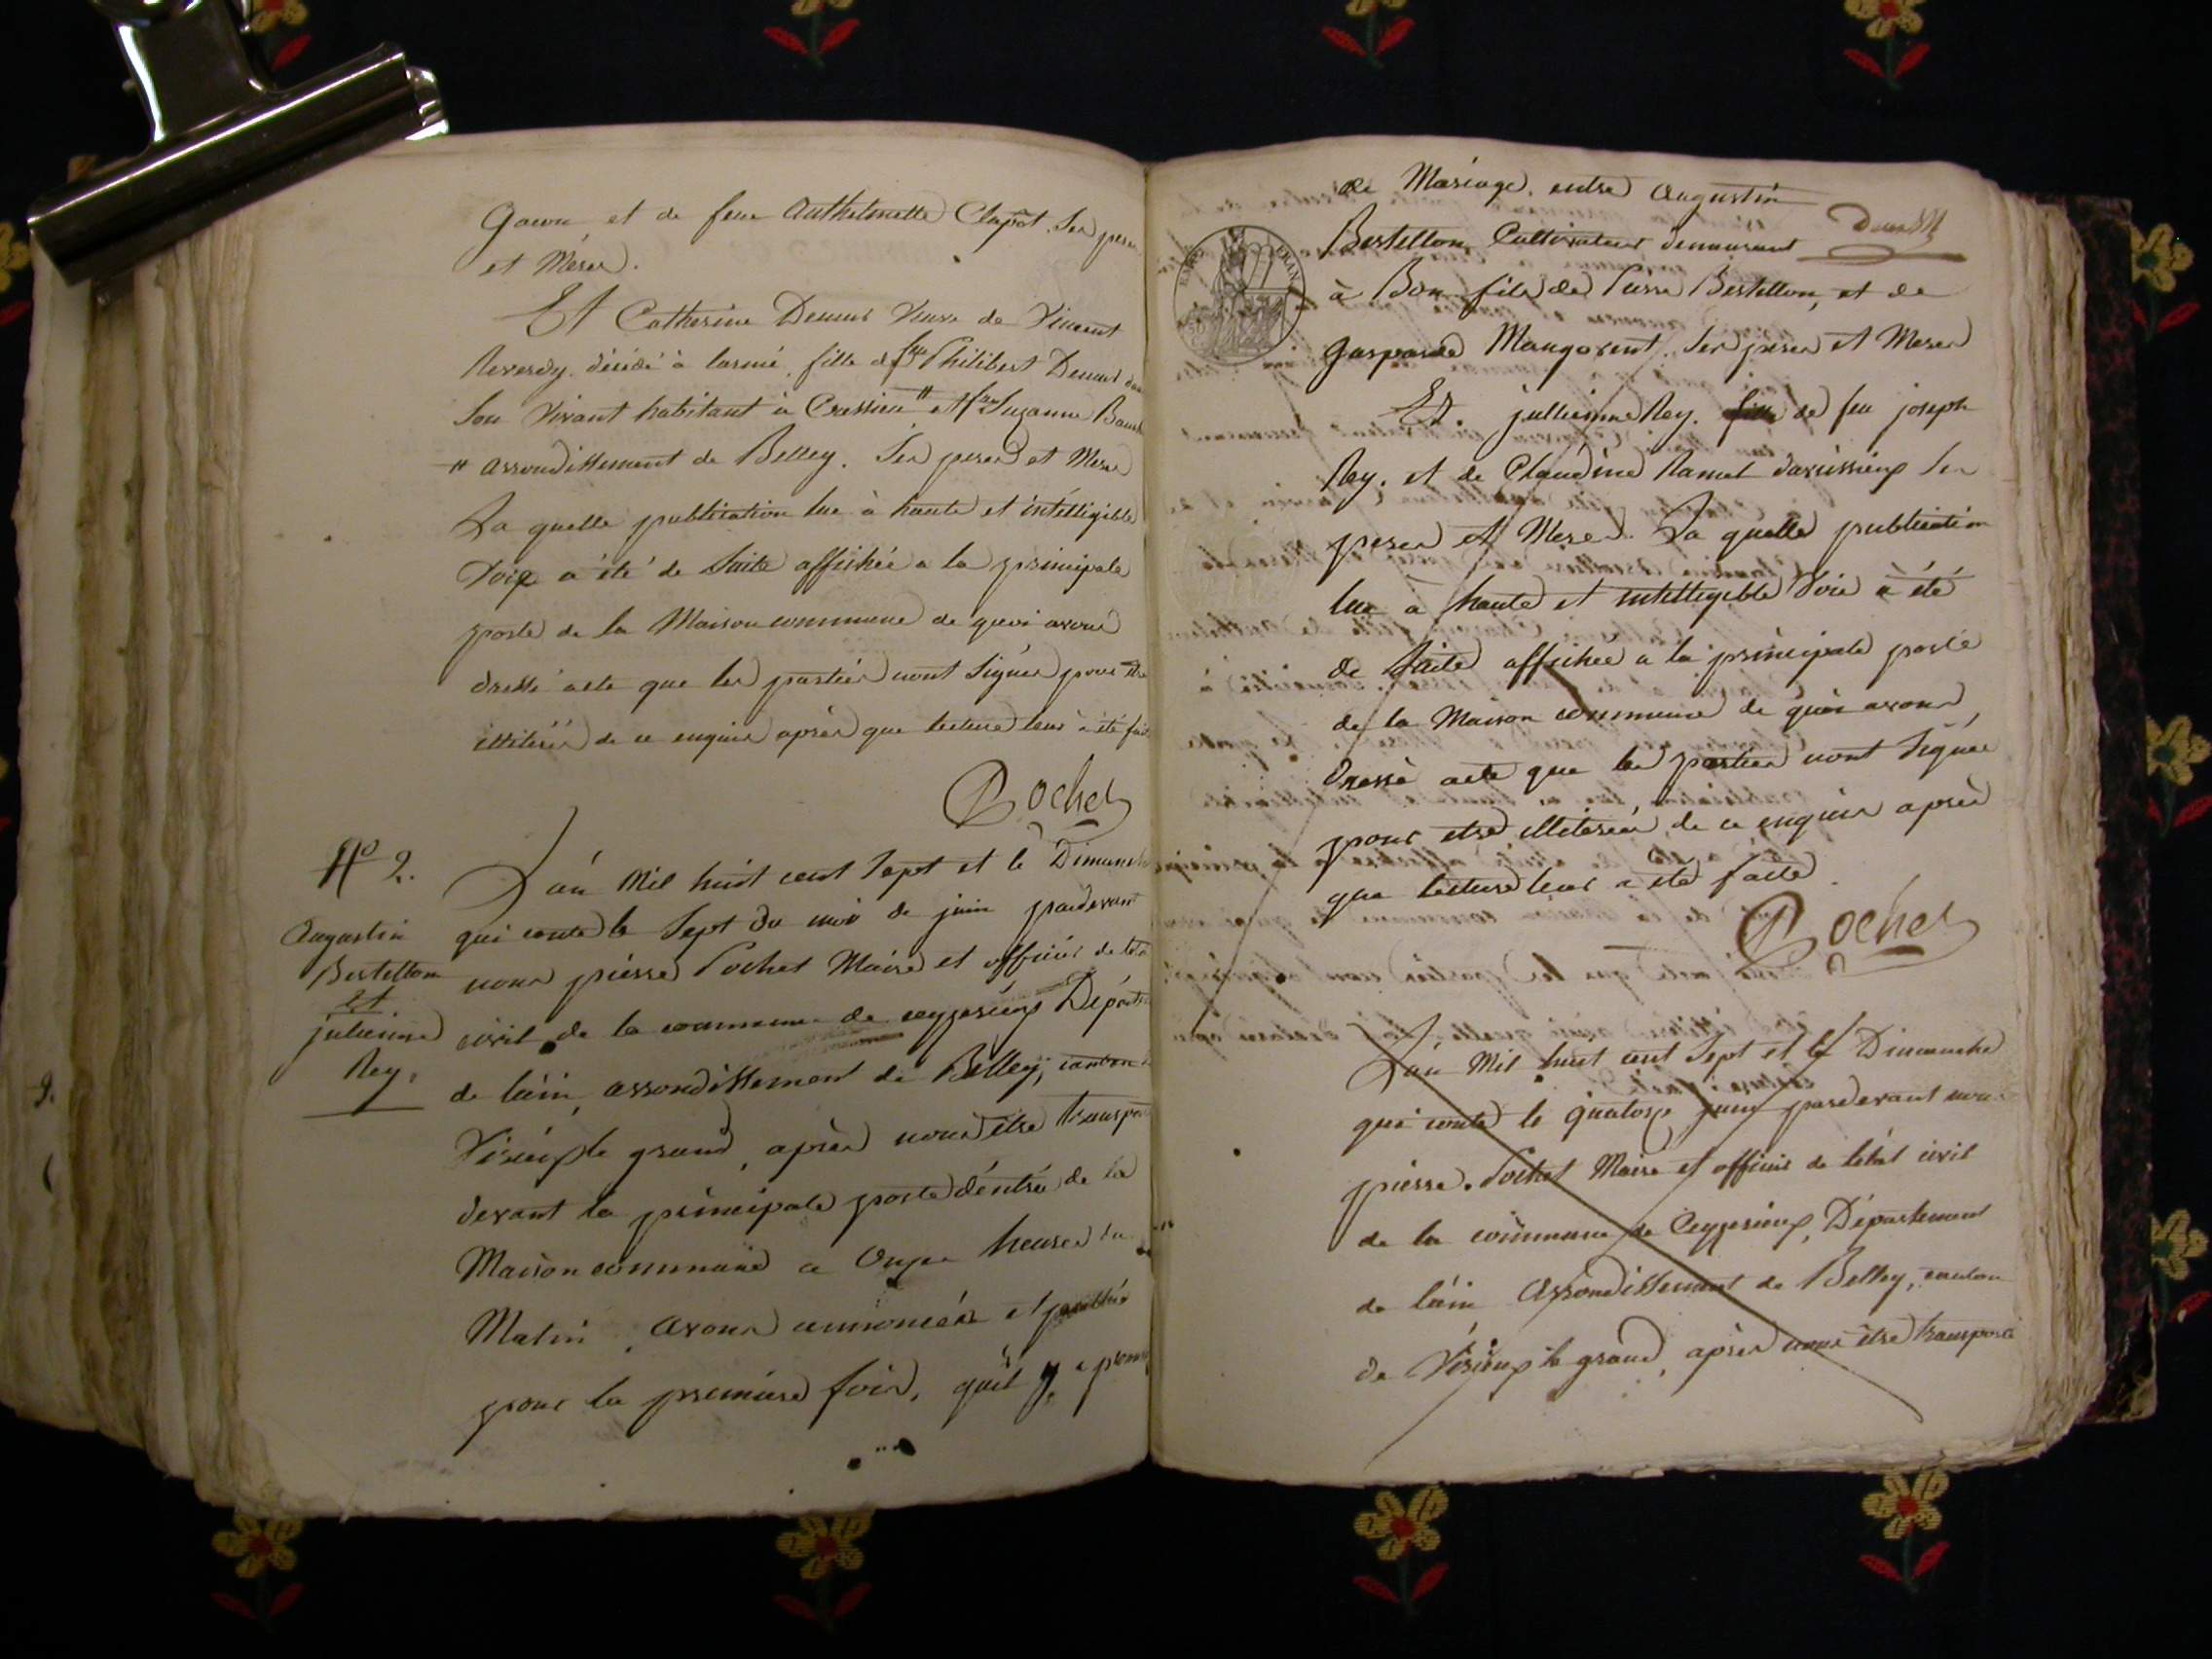 et de feue Anthelmette Clapot Ses peres
et Méres.
Et Catherine Demur Veuve de Vincent
Reverdy décédé à larmé, fille de feu Philibert Demur
Son Vivant habitant à Cressieu # et feue Suzanne
# arrondissement de Belley. Ses peres et Meres
La quelle publication lue à haute et intélligible
Voix a été de Suite affichée a la principale
porte de la Maison commune de quoi avons
dressé acte que les parties nont Signés pour être
illiterés de ce enquis aprés que lecture leur à été fait
Pochet
N° 2.
Augustin
Bertellon
et
julienne
Rey.
Lán Mil huit cent Sept et le Dimanche
qui conte le Sept du moi de juin pardevant
nous piérre Pochet Maire et officiér de létat
civil de la commune de ceyzérieux Départ
de láin, arrondissement de Belley, canton
Virieux le grand, aprés nous être transporté
devant la principale porte déntrée de la
Maison commune a Onze heures du
Matin, avons annoncér et publié
pour la premiere foix, quil y, a prom
de Mariage, entre Augustin
Bertellon Cultivateur demeurant
à Bon fils de Pierre Bertellon, et de
Gasparde Mangorent. Ses peres et Meres
Et julienne Rey. fille de feu joseph
Rey, et de Claudine Ramel Ses
peres et Meres. La quelle publication
lue a haute et intelligible Voie a été
de Suite affichée a la principale porte
de la Maison commune de quoi avons
Dressé acte que les parties nont Signée
pour etre illiterées de ce enquis aprés
que lecture leur a été faite.
Pochet
Lán Mil huit cent Sept et le Dimanche
qui conte le quatorze juin pardevant nous
piérre Pochet Maire et officier de létat civil
de la commune de Ceyzerieux, Département
de láin Arrondissement de Belley, canton
de Virieux le grand, aprés nous être transporté